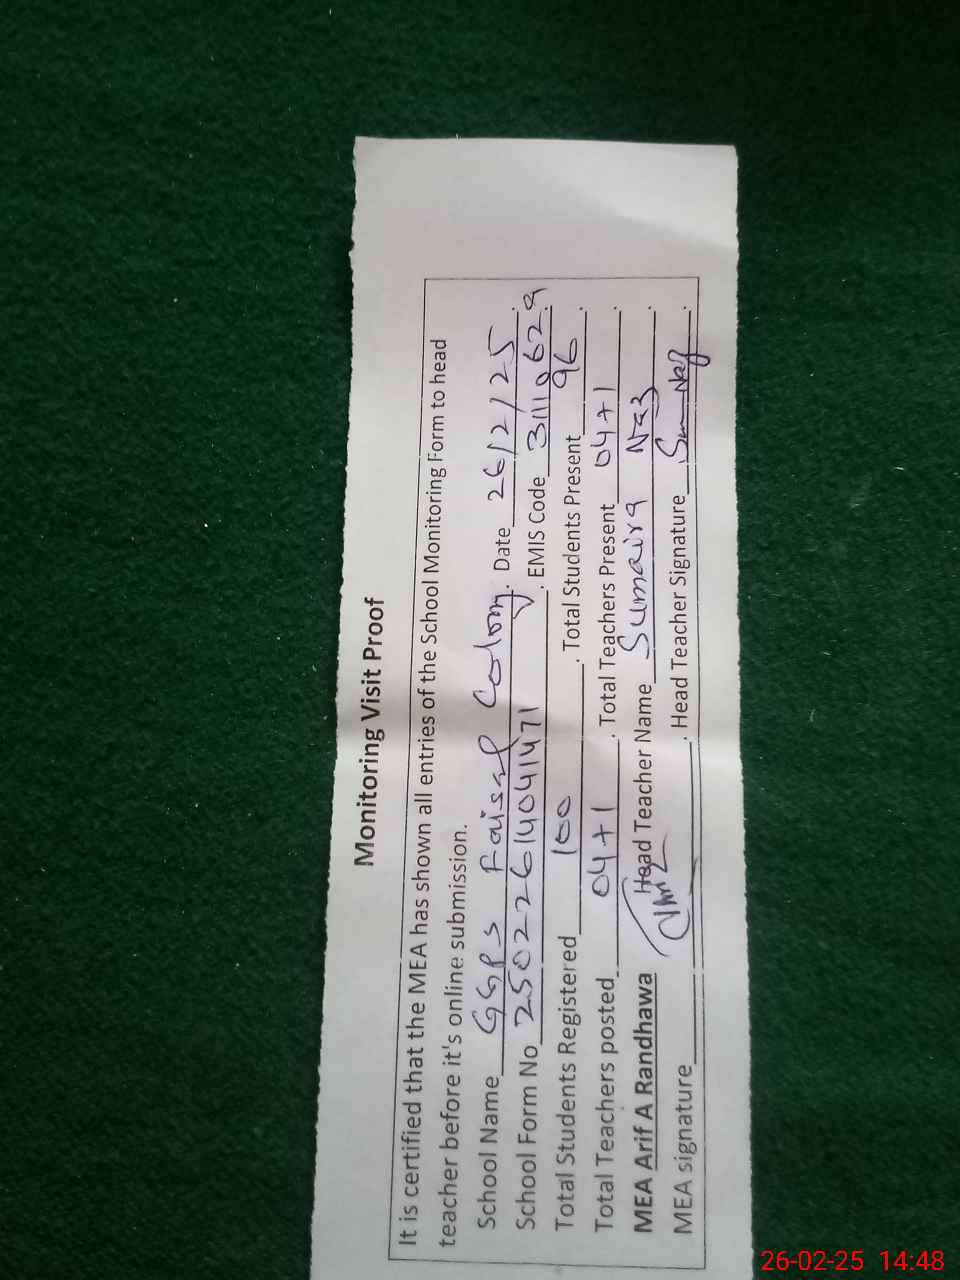 Monitoring Visit Proof
It is certified that the MEA has shown all entries of the School Monitoring Form to head
teacher before it's online submission.
School Name GGPS Faisal Colony. Date 26/2/25.
School Form No 25022614041471. EMIS Code 31110629.
Total Students Registered 100. Total Students Present 96.
Total Teachers posted 04+1. Total Teachers Present 04+1.
MEA Arif A Randhawa Head Teacher Name Sumaira Naz.
MEA signature. Head Teacher Signature Naz.
26-02-25 14:48